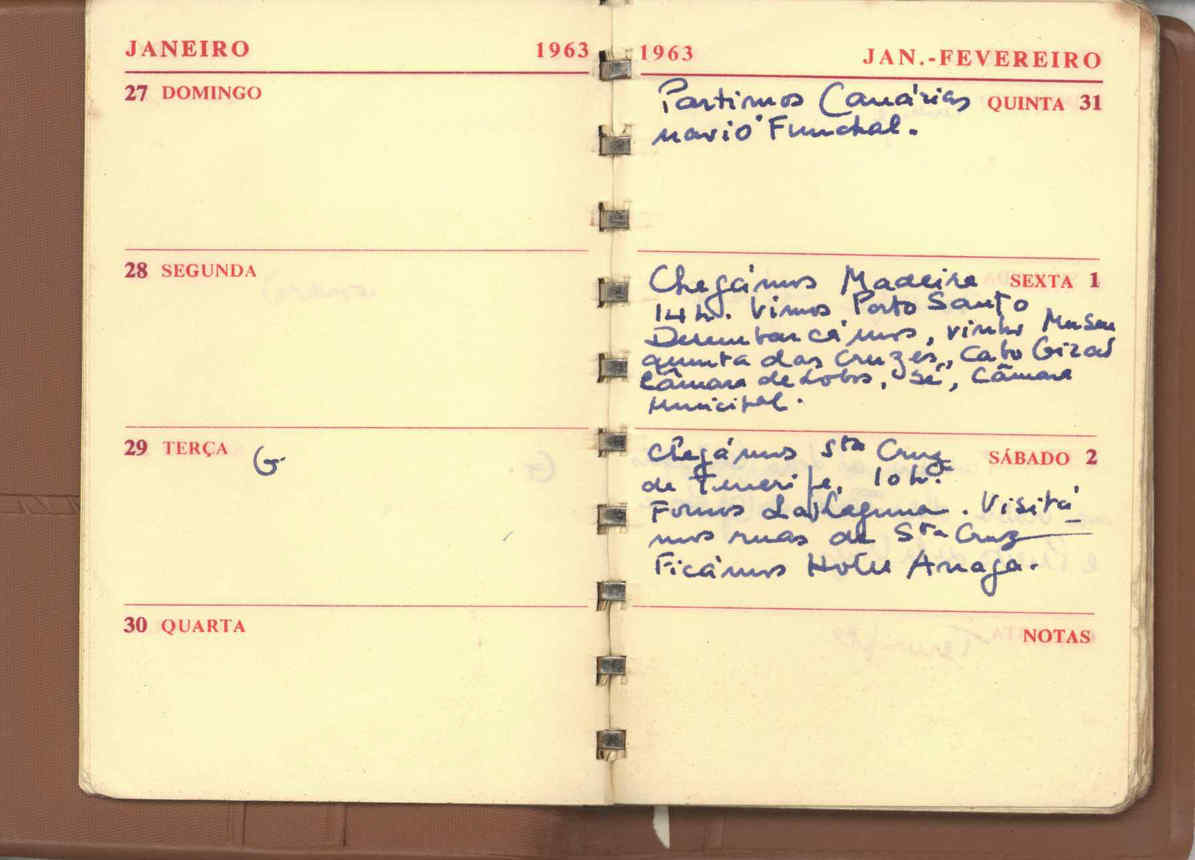 JANEIRO 1963
27 DOMINGO
28 SEGUNDA
29 TERÇA G.
30 QUARTA
1963 JAN.-FEVEREIRO
Partimos Canárias QUINTA 31
navio Funchal.
Chegámos Madeira SEXTA 1
14 h. Vimos Porto Santo
Desembarcámos, vinho Museu
quinta das Cruzes, Cabo Girao
Câmara de Lobos, Sé, Câmara
Municipal.
Chegámos Sta Cruz SÁBADO 2
de Tenerife, 10 h.
Fomos La Laguna. Visitá-
mos ruas de Sta Cruz
Ficámos Hotel Anaga.
NOTAS